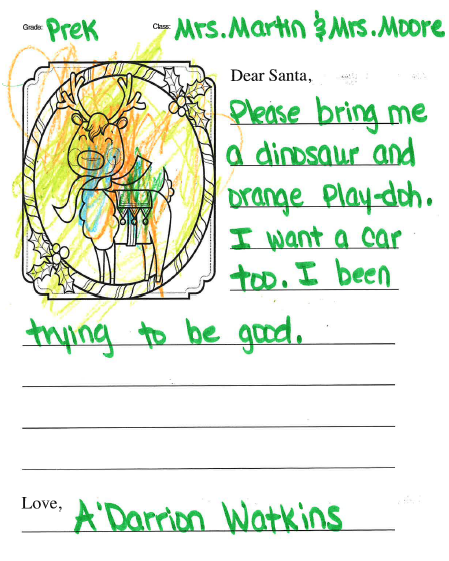 Grade: PreK Class: Mrs. Martin & Mrs. Moore
Dear Santa,
Please bring me
a dinosaur and
orange Play-doh.
I want a car
too. I been
trying to be good.
Love, A'Darrion Watkins